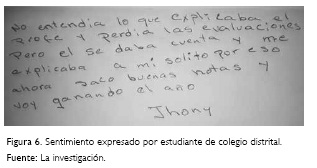 no entendia lo que explicaba el
profe y perdia las evaluaciones
Pero el se dava cuenta y me
explicaba a mi solito por eso
ahora saco buenas notas y
voy ganando el año
Jhony
Figura 6. Sentimiento expresado por estudiante de colegio distrital.
Fuente: La investigación.